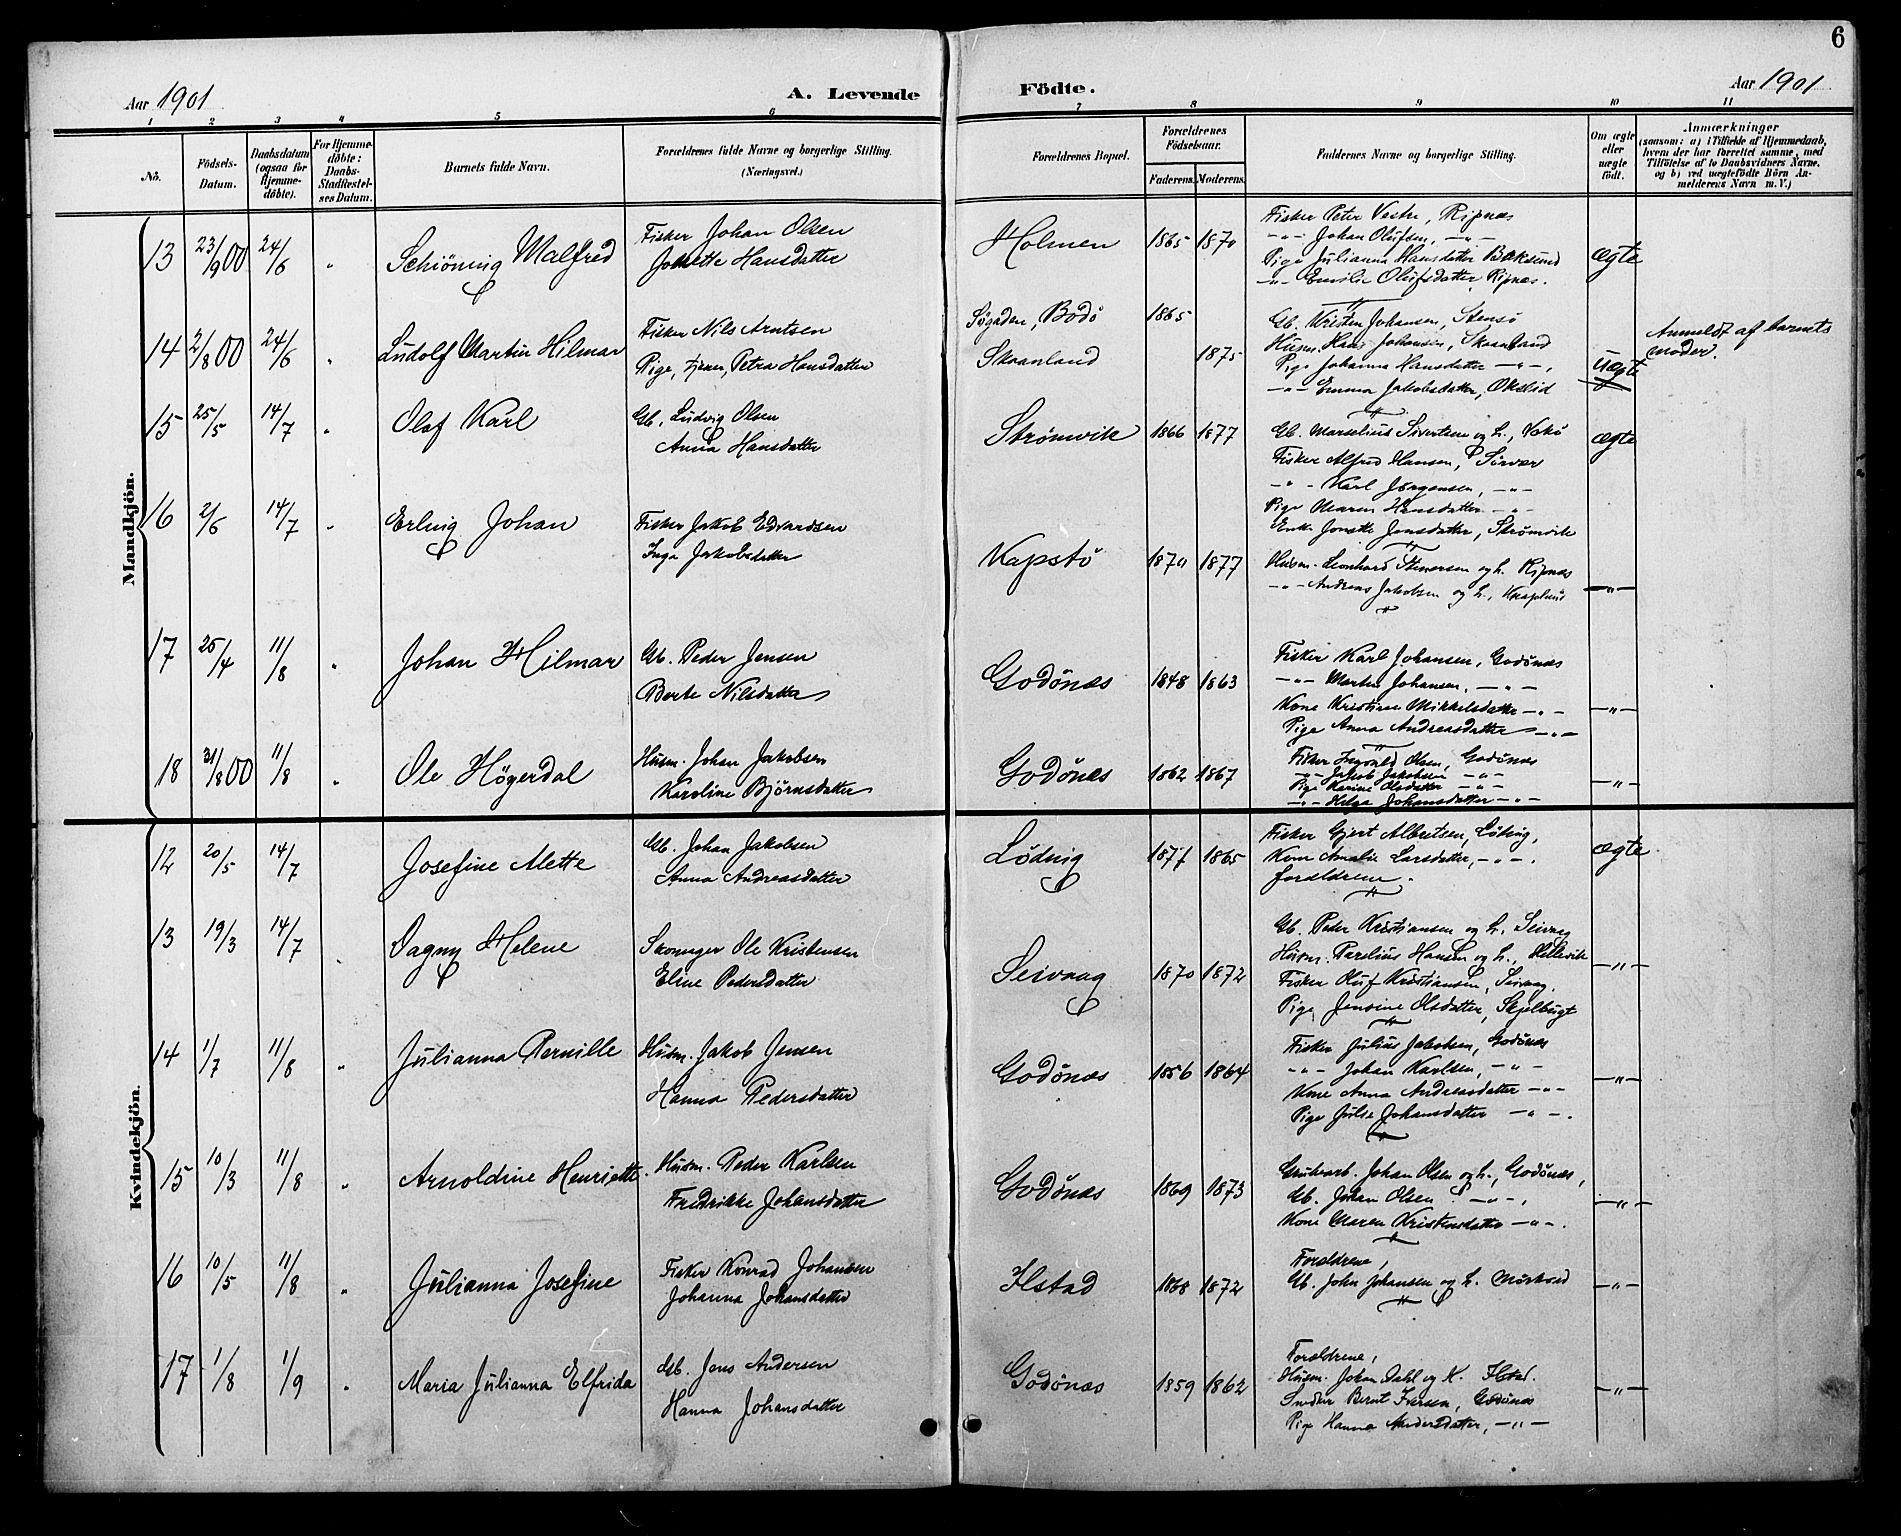 6
Aar 1901
A. Levende
Födte.
Aar 1901
1 2 3 4 5 6 7 8 9 10 11
No.
Födsels-
Datum.
Daabsdatum
(ogsaa for
Hjemme-
døbte).
For Hjemme-
døbte:
Daabs-
Stadfæstel-
ses Datum.
Barnets fulde Navn.
Forældrenes fulde Navne og borgerlige Stilling.
(Næringsvei.)
Forældrenes Bopæl.
Forældrenes
Födselsaar.
Faderens. Moderens.
Faddernes Navne og borgerlige Stilling.
Om ægte
eller
uægte
födt.
Anmærkninger
(saasom: a) i Tilfælde af Hjemmedaab,
hvem der har forrettet samme, med
Tilføielse af to Daabsvidners Navne,
og b) ved uægtefödte Börn An-
melderens Navn m. V.)
Mandkjön.
13 23/9 00 24/6 " Schiöning Malfred
Fisker Johan Olsen
Jonette Hansdatter
Holmen 1865 1870
Fisker Peter Vestre, Ripnæs
-"- Johan Olufsen, -"-
Pige Julianna Hansdatter Bæksund
-"- Emilie Olufsdatter Ripnæs.
ægte
14 2/8 00 24/6 " Ludolf Martin Hilmar
Fisker Nils Arntsen
Pige, tjener, Petra Hansdatter
Søgaden, Bodö 1865
Skaanland 1875
Gb. Kristen Johansen, Stensö
Husm. Hans Johansen, Skaanland
Pige Johanna Hansdatter -"-,
-"- Emma Jakobsdatter,
uægte
Anmeldt af barnets
moder.
15 25/5 14/7 " Olaf Karl
Gb. Ludvig Olsen
Anna Hansdatter
Strömvik 1866 1877
Gb. Marselius Sivertsen og h.,
Fisker Alfred Hansen, Sörvær
-"- Karl Jörgensen, -"-
Pige Maren Hansdatter -"-
Enke Jonette Jonsdatter, Strömvik
ægte
16 2/6 14/7 " Erling Johan
Fisker Jakob Edvardsen
Inga Jakobsdatter
Kapstö 1870 1877
Husm. Leonhard Steinersen og h. Ripnæs
-"- Andreas Jakobsen og h.,
-"-
17 25/4 11/8 " Johan Hilmar
Gb. Peder Jensen
Berte Nilsdatter
Godönæs 1848 1863
Fisker Karl Johansen, Godönæs
-"- Martin Johansen, -"-
Kone Kristine Mikkelsdatter -"-
Pige Anna Andreasdatter -"-
-"-
18 31/8 00 11/8 " Ole Högerdal
Husm. Johan Jakobsen
Karoline Björnsdatter
Godönæs 1862 1867
Fisker Ingvald Olsen, Godönæs
-"- Jakob Jakobsen -"-
Pige Karine Olsdatter -"-
-"- Helga Johansdatter -"-
-"-
Kvindekjön.
12 20/5 14/7 Josefine Alette
Gb. Johan Jakobsen
Anna Andreasdatter
Lödvig 1877 1865
Fisker Gjert Albertsen, Löding,
Kone Amalie Larsdatter, -"-.
forældrene.
ægte.
13 19/3 14/7 " Dagny Helene
Skomager Ole Kristensen
Eline Pedersdatter
Seivaag 1870 1872
Gb. Peder Kristiansen og h. Seivaag
Husm. Parelius Hansen og h., Hellevik
Fisker Oluf Kristiansen, Seivaag,
Pige Jensine Olsdatter, Skjelbugt
-"-
14 1/7 11/8 " Julianna Pernille
Husm. Jakob Jensen
Hanna Pedersdatter
Godönæs 1856 1864
Fisker Julius Jakobsen, Godönæs
-"- Johan Karlsen, -"-
Kone Anna Andreasdatter -"-
Pige Julie Johansdatter -"-.
-"-
15 10/3 11/8 " Arnoldine Henriette
Husm. Peder Karlsen
Fredrikke Johansdatter
Godönæs 1869 1873
Grubearb. Johan Olsen og h., Godönæs,
Gb. Johan Olsen -"-,
Kone Maren Kristensdatter -"-.
-"-
16 10/5 11/8 " Julianna Josefine
Fisker Konrad Johansen
Johanna Johansdatter
Ilstad 1868 1872
Forældrene,
Gb. John Johansen og h. Mörkved
-"-
17 1/8 1/9 " Maria Julianna Elfrida
Gb. Jens Andersen
Hanna Johansdatter
Godönæs 1859 1862
Forældrene,
Husm. Johan Dahl og K. Ilstad.
Smeder Bernt Iversen, Godönæs
Pige Hanna Andersdatter, -"-
-"-